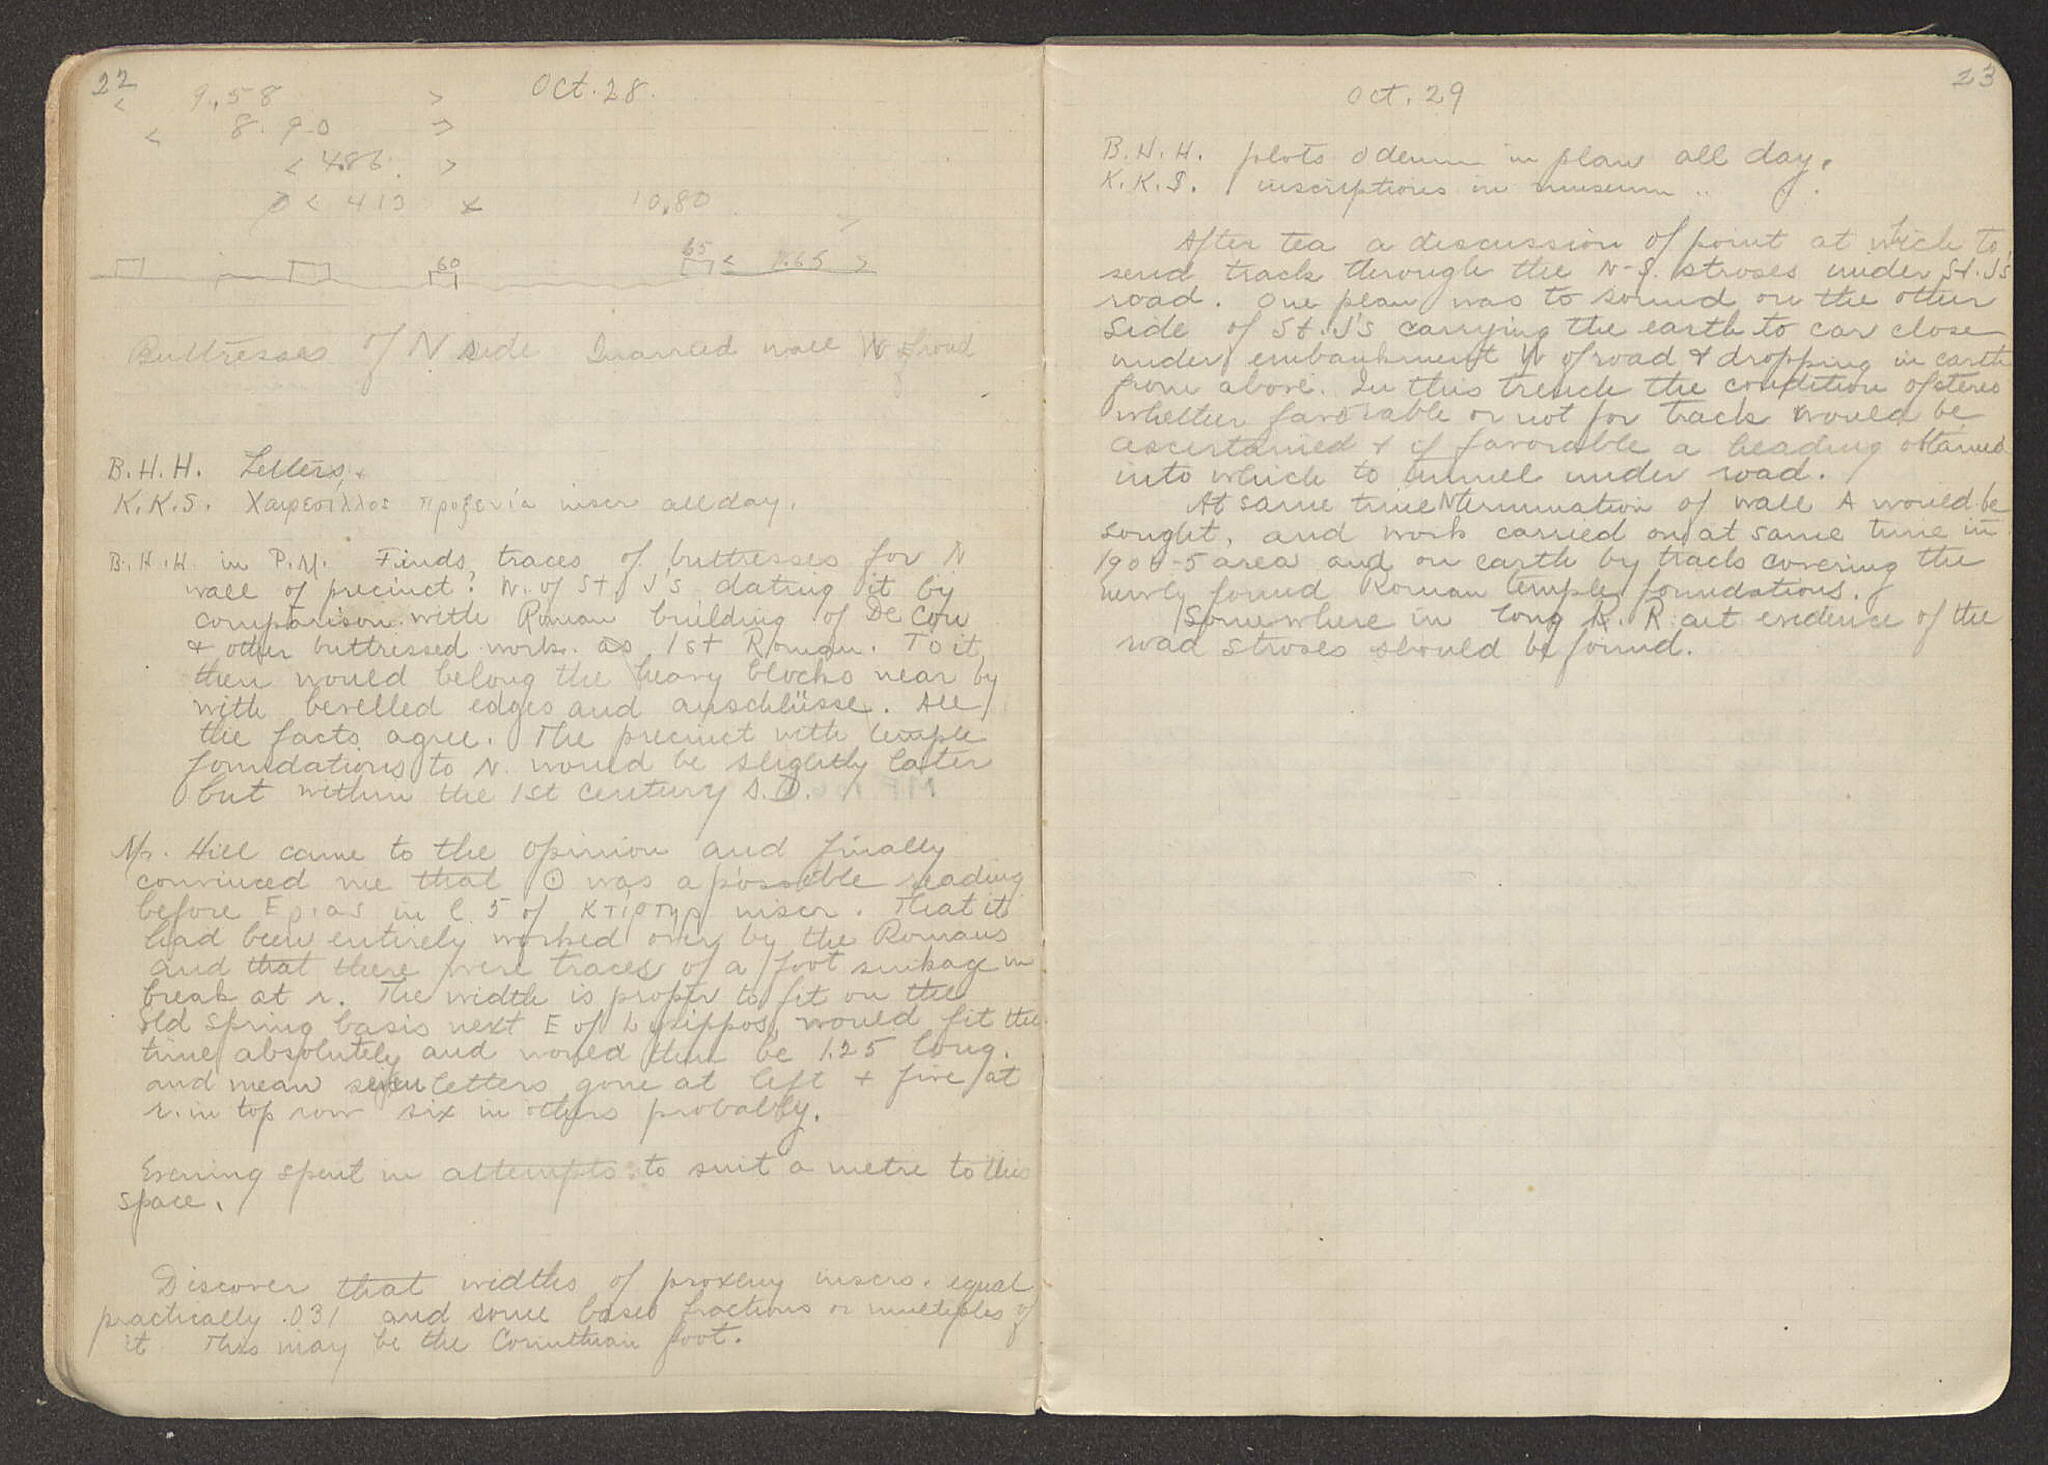 22
Oct. 28.
< 9.58 >
< 8.90 >
< 4.86 >
< 413 × 10.80 >
60 65 < 1.65 >
Buttresses of N side Quarried wall W of road
B.H.H. Letters
K.K.S. προξενία inscr all day.
B.H.H. in P.M. Finds traces of buttresses for N
wall of precinct? W. of St. J's dating it by
comparison with Roman building of De Cou
& other buttressed work as 1st Roman. To it
then would belong the heavy blocks near by
with bevelled edges and anschlüsse. All
the facts agree. The precinct with temple
foundations to N. would be slightly later
but within the 1st century A.D.
Mr. Hill came to the opinion and finally
convinced me that Θ was a possible reading
before in l. 5 of inscr. That it
had been entirely worked over by the Romans
and that there were traces of a foot sinkage in
break at r. The width is proper to fit on the
old Spring basis next E of Lysippos, would fit the
time absolutely and would then be 1.25 long.
and mean seven letters gone at left + five at
r. in top row six in others probably.
Evening spent in attempts to suit a metre to this
space.
Discover that widths of proxeny inscrs. equal
practically .031 and some bases fractions or multiples of
it This may be the Corinthian foot.
23
Oct. 29
B.H.H. plots Odeum in plan all day.
K.K.S. inscriptions in museum " .
After tea a discussion of point at which to
send track through the N-S. stroses under St. J's
road. One plan was to sound on the other
side of St. J's carrying the earth to car close
under embankment W of road & dropping in earth
from above. In this trench the condition of
whether favorable or not for track would be
ascertained & if favorable a heading obtained
into which to tunnel under road.
At same time N termination of wall A would be
sought, and work carried on at same time in
190 -5 area and on earth by track covering the
newly found Roman temple foundations.
Somewhere in long R.R. cut evidence of the
road stroses should be found.